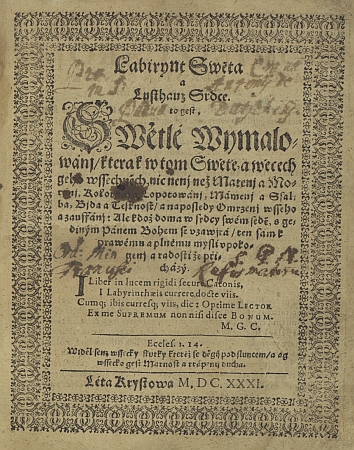 Labirynt Swěta
a
Lusthauz Srdce.
to gest,
SWětlé Wymalo-
wánj / kterak w tom Swětě a wěcech
geho wssechněch, nic nenj než Matenj a Mo-
Kolo Lopotowánj / Mámenj a Ssal-
ba / Bjda a Tesknost / a naposledy Omrzenj wsseho
a zauffánj: Ale kdož doma w srdcy swém sedě, s ge-
diným Pánem Bohem se vzawjrá / ten sám k
prawému a plnému mysli vpoko-
genj a radosti že při-
cházý.
I Liber in lucem rigidi secure Catonis,
I Labyrinthæis currere docte viis.
Cumq; ibis curresq; viis, dic: Optime LECTOR
Ex me SUPREMUM non nisi disce BONUM.
M. G. C.
Eccles. 1. 14.
Widěl sem wssecky skutky kteréž se děgj pod sluncem / a ag
wssecko gest Marnost a trápenj ducha.
Léta Krystowa M. DC. XXXI.